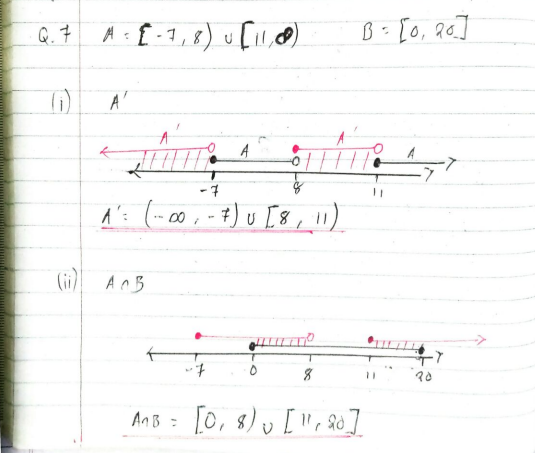 Q.7 A = [-7, 8) ∪ [11, ∞) B = [0, 20]
(i) A'
A' A A' A
-7 8 11
A' = (-∞, -7) ∪ [8, 11)
(ii) A∩B
-7 0 8 11 20
A∩B = [0, 8) ∪ [11, 20]